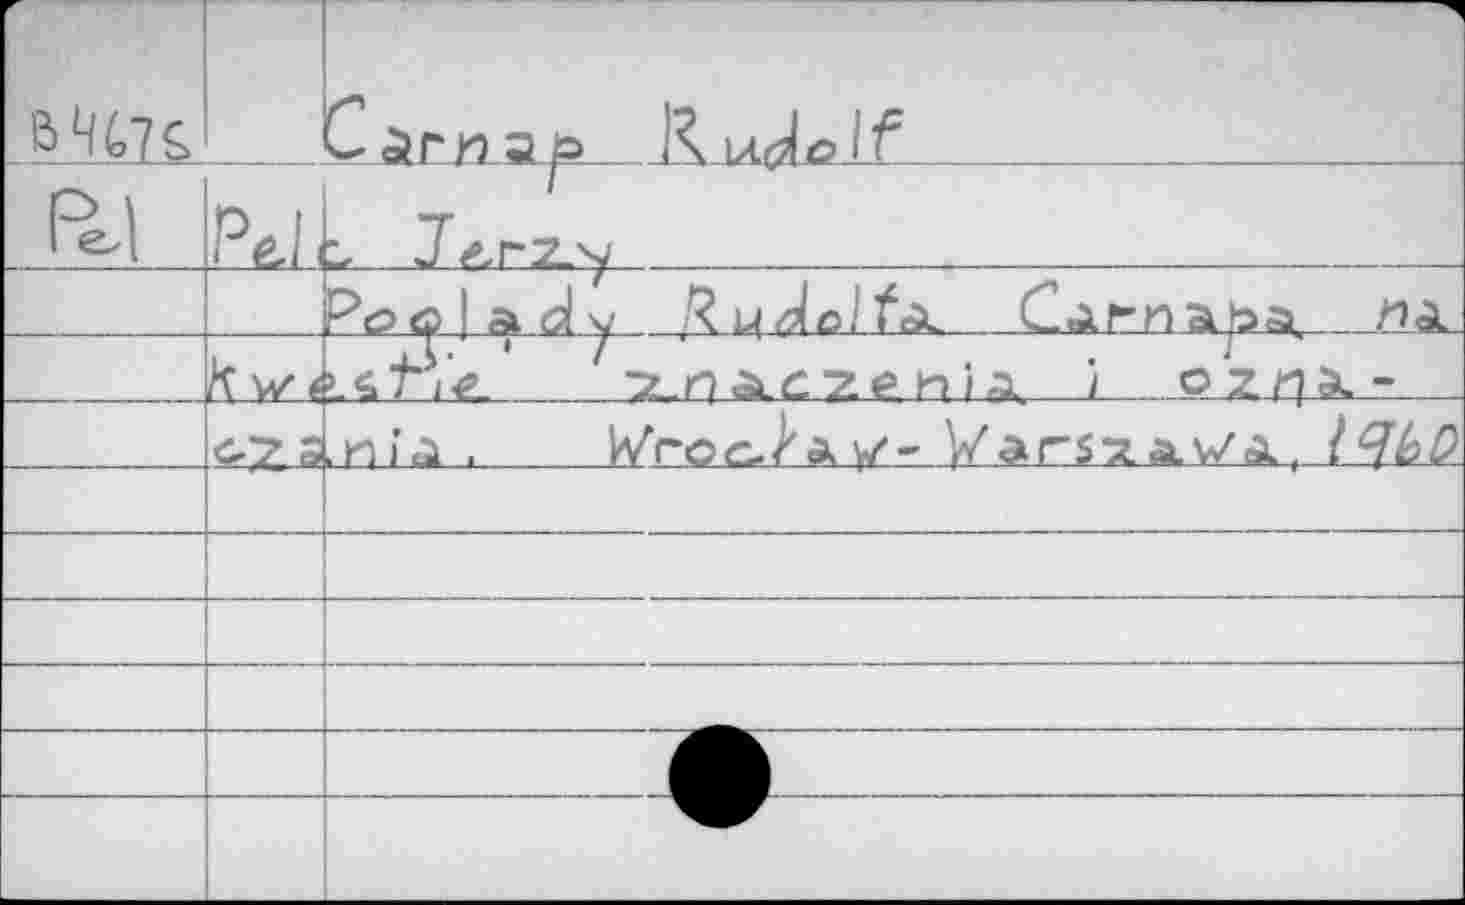 B4675 Carnap Rudolf
Pel Pelc Jerzy
Poglądy Rudolfa Carnapa na
kwestie znaczenia i ozna-
czania. Wrocław-Warszawa, 1960